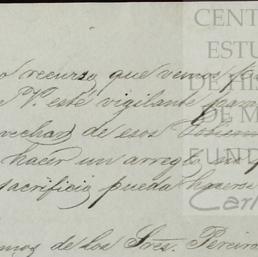 CENT
ESTU
DE HIS
DE M
FUND
Carl
o recurso que vemos
e V. esté vigilante para
vechar de esos
hacer un arreglo
sacrificio pueda hacerse
mos de los Sres. Pereira